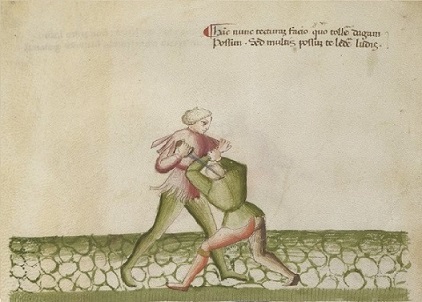 Hac nunc tecturaȝ facio quo tolle dagam
Possim · Sed multis possuȝ te ledere ludis ·